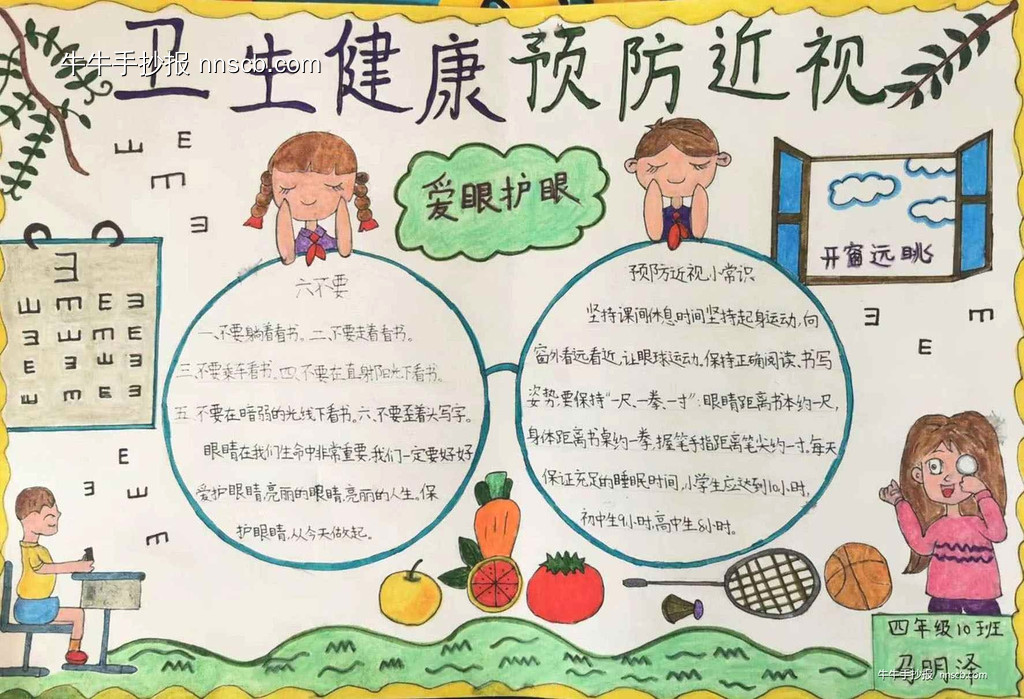 卫生健康预防近视
牛牛手抄报 nnscb.com
爱眼护眼
开窗远眺
六不要
一、不要躺着看书。二、不要走着看书。
三、不要乘车看书。四、不要在直射阳光下看书。
五、不要在暗弱的光线下看书。六、不要歪着头写字。
眼睛在我们生命中非常重要,我们一定要好好
爱护眼睛,亮丽的眼睛,亮丽的人生。保
护眼睛,从今天做起。
预防近视小常识
坚持课间休息时间坚持起身运动,向
窗外看远看近,让眼球运动。保持正确阅读、书写
姿势,要保持“一尺、一拳、一寸”:眼睛距离书本约一尺,
身体距离书桌约一拳,握笔手指距离笔尖约一寸。每天
保证充足的睡眠时间,小学生应达到10小时,
初中生9小时,高中生8小时。
四年级10班
马明泽
牛牛手抄报 nnscb.com